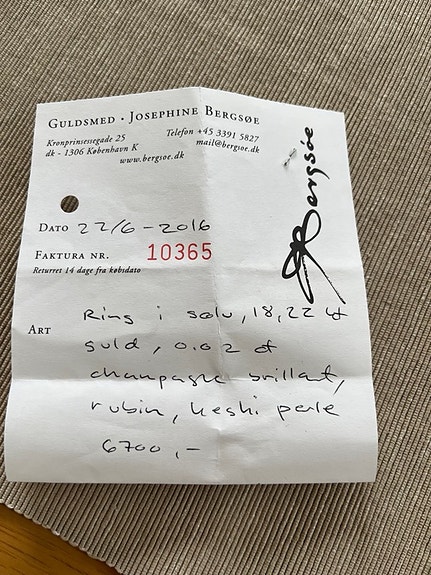 GULDSMED · JOSEPHINE BERGSØE
Kronprinsessegade 25
dk - 1306 København K
Telefon +45 3391 5827
mail@bergsoe.dk
www.bergsoe.dk
Bergsøe
DATO 22/6-2016
FAKTURA NR. 10365
Returret 14 dage fra købsdato
ART
Ring i sølv, 18,22 kt
guld, 0.02 ct
champagne brillant,
rubin, keshi perle
6700,-